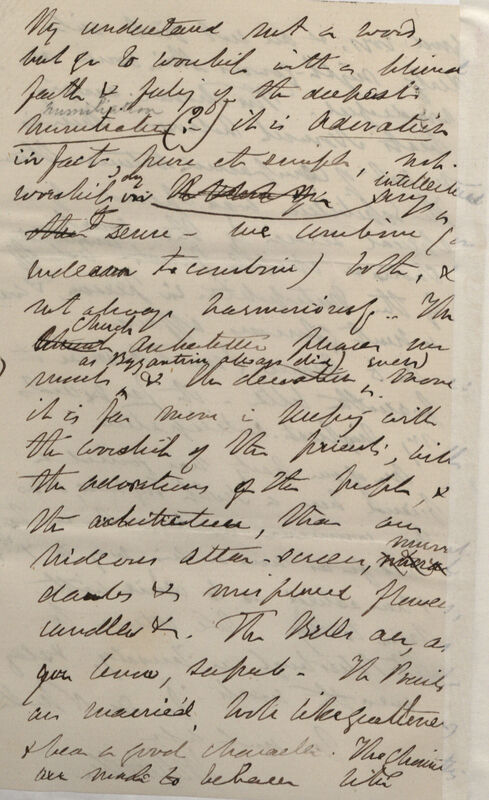 They understand not a word,
but go to worship with a blind
faith & feeling of the deepest
humiliation
humiliation (?) it is adoration
in fact, pure et simple, not
worship in any intellectual
sense - we combine (or
endeavour to combine) both, &
not always harmoniously. The
Church architecture pleases me
as Byzantine always did, even
much, & the decoration is more
it is far more in keeping with
the worship of the priests, with
the adorations of the people, &
the architecture, than our
hideous altar-screen, mural
daubs & misplaced flowers,
candles &c. The Bells are, as
you know, superb - The Priests
are married, look like gentlemen
& bear a good character. The
are made to between